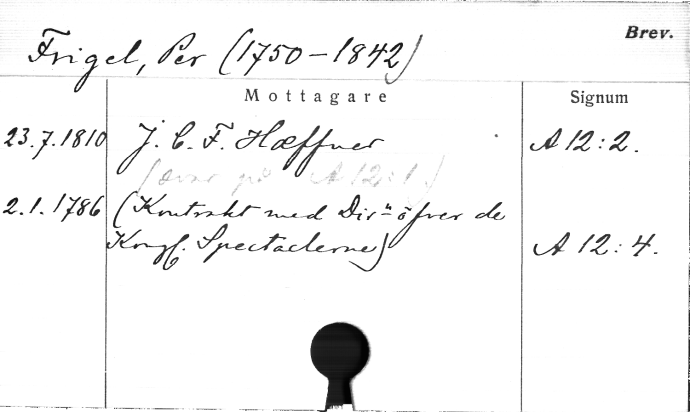 Brev.
Frigel, Per (1750-1842)
Mottagare Signum
23.7.1810 J. C. F. Hæffner A 12:2.
(svar på A 12:1)
2.1.1786 (Kontrakt med Dir:n öfver de
Kongl. Spectaclerne) A 12:4.